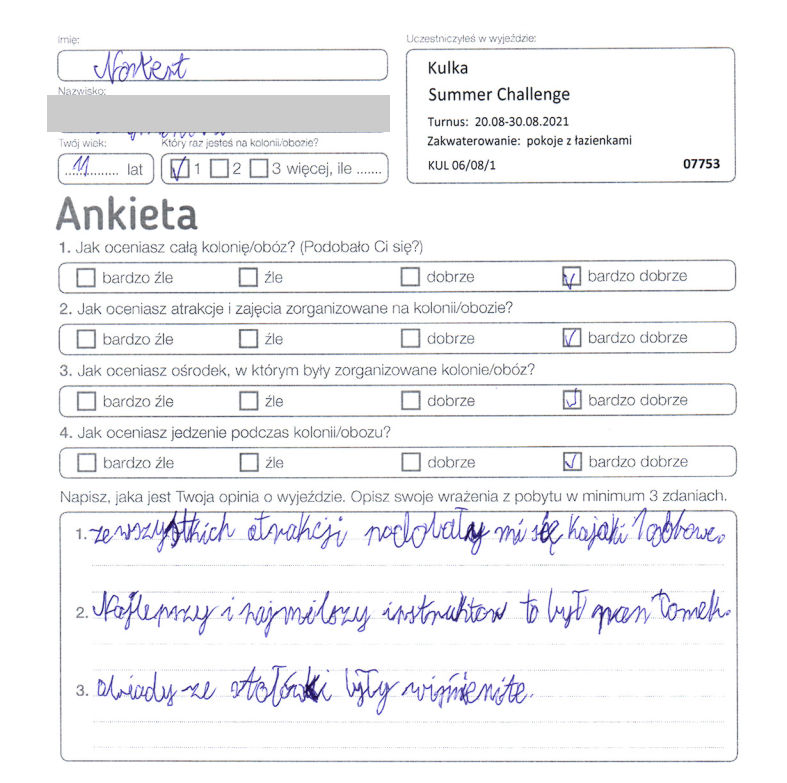 Imię:
Norbert
Nazwisko:
Twój wiek:
11 lat
Który raz jesteś na kolonii/obozie?
1 2 3 więcej, ile .......
Uczestniczyłeś w wyjeździe:
Kulka
Summer Challenge
Turnus: 20.08-30.08.2021
Zakwaterowanie: pokoje z łazienkami
KUL 06/08/1 07753
Ankieta
1. Jak oceniasz całą kolonię/obóz? (Podobało Ci się?)
bardzo źle źle dobrze bardzo dobrze
2. Jak oceniasz atrakcje i zajęcia zorganizowane na kolonii/obozie?
bardzo źle źle dobrze bardzo dobrze
3. Jak oceniasz ośrodek, w którym były zorganizowane kolonie/obóz?
bardzo źle źle dobrze bardzo dobrze
4. Jak oceniasz jedzenie podczas kolonii/obozu?
bardzo źle źle dobrze bardzo dobrze
Napisz, jaka jest Twoja opinia o wyjeździe. Opisz swoje wrażenia z pobytu w minimum 3 zdaniach.
1. ze wszystkich atrakcji podobały mi się kajaki
2. Najlepszy i najmilszy instruktor to był pan Tomek.
3. obiady ze stołówki były wiśmienite.